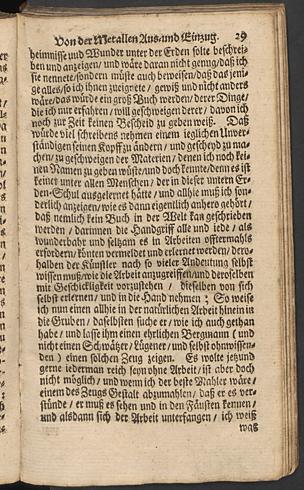 Von der Metallen Aus- und Einzug. 29
heimnisse und Wunder unter der Erden solte beschrei-
ben und anzeigen / und wäre daran nicht genug / daß ich
sie nennete / sondern müste auch beweisen / daß das jeni-
ge alles / so ich ihnen zueignete / gewiß und nicht anders
wäre / das würde ein groß Buch werden / derer Dinge /
die ich nur erfahren / will geschweigen derer / davon ich
noch zur Zeit keinen Bescheid zu geben weiß. Daß
würde viel schreibens nehmen einem jeglichen Unver-
ständigen seinen Kopff zu ändern / und gescheyd zu ma-
chen / zu geschweigen der Materien / denen ich noch kei-
nen Namen zu geben wüste / und doch kennte / denn es ist
keiner unter allen Menschen / der in dieser untern Er-
den-Schul ausgelernet hätte / und allhie muß ich son-
derlich anzeigen / wie es dann eigentlich anhero gehört /
daß nemlich kein Buch in der Welt kan geschrieben
werden / darinnen die Handgriff alle und jede / als
wunderbahr und seltzam es in Arbeiten offtermahls
erfordern / könten vermeldet und erlernet werden / dero-
halben der Künstler nach so vieler Andeutung selbst
wissen muß / wie die Arbeit anzugreiffen / und deroselben
mit Geschickligkeit vorzustehen / dieselben von sich
selbst erlernen / und in die Hand nehmen; So weise
ich nun einen allhie in der natürlichen Arbeit hinein in
die Gruben / daselbsten suche er / wie ich auch gethan
habe / und lasse ihm einen ehrlichen Bergmann ( und
nicht einen Schwätzer / Lügener / und selbst ohnwissen-
den ) einen solchen Zeug zeigen. Es wolte jetzund
gerne iederman reich seyn ohne Arbeit / ist aber doch
nicht möglich / und wenn ich der beste Mahler wäre /
einem des Zeugs Gestalt abzumahlen / daß er es ver-
stünde / er muß es sehen und in den Fäusten kennen /
und alsdann sich der Arbeit unterfangen / ich weiß
was